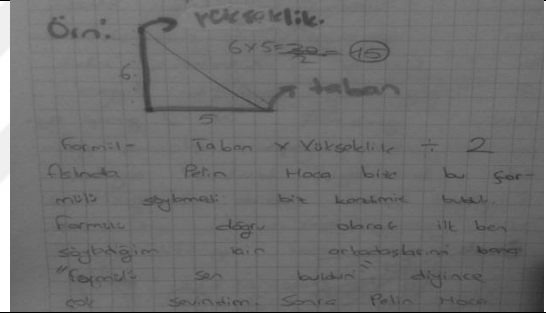 Örn:
yükseklik.
6x5=30/2=15
6
taban
5
Formül= Taban x Yükseklik ÷ 2
Aslında Pelin Hoca bize bu for-
mülü söylemedi biz kendimiz bulduk.
Formülü doğru olarak ilk ben
söylediğim için arkadaşlarım bana
"formülü sen buldun" diyince
çok sevindim. Sonra Pelin Hoca